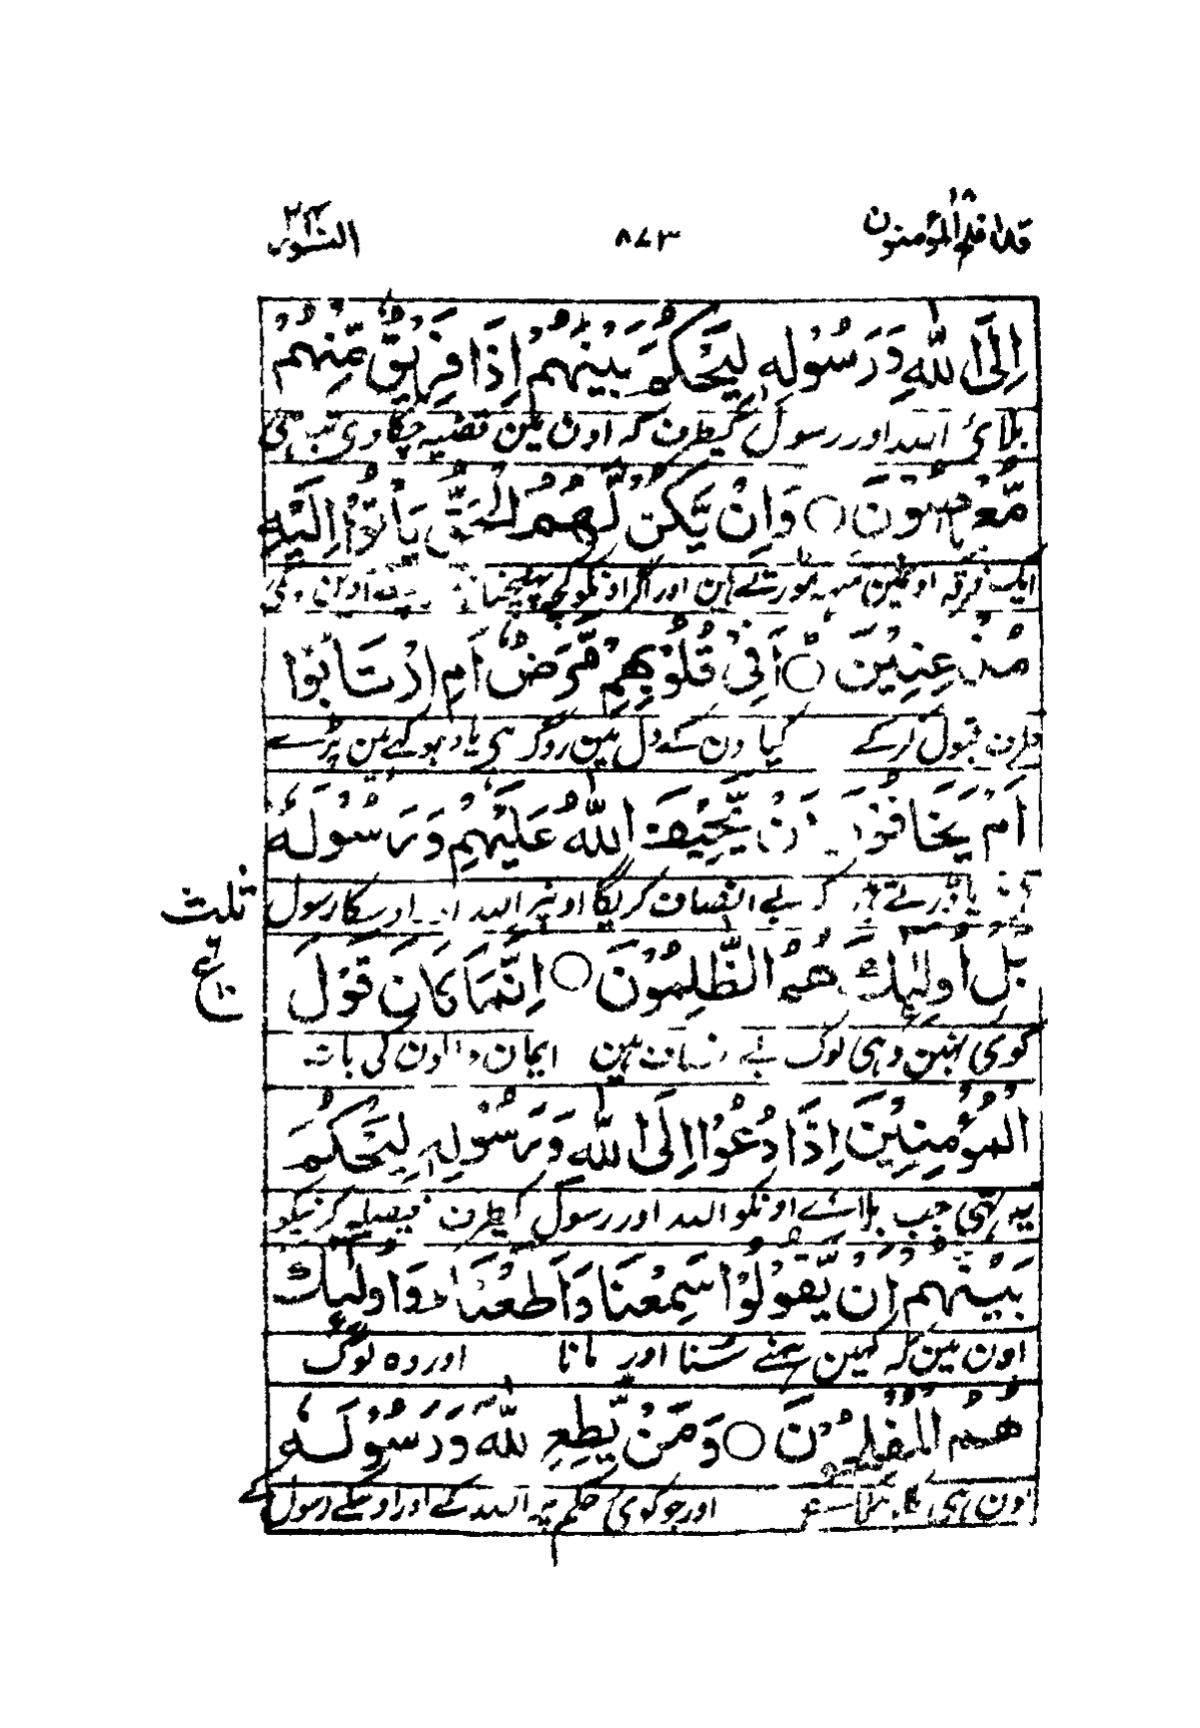 قد افلح المؤمنون ١٨
٨٤٣
النور ٢٤
اِلَى اللّٰهِ وَرَسُوْلِهٖ لِيَحْكُمَ بَيْنَهُمْ اِذَا فَرِيْقٌ مِّنْهُمْ
بلائی اللہ اور رسول کیطرف کہ اون مین قضیہ چکاوی تب ہی
مُّعْرِضُوْنَ ○ وَاِنْ يَّكُنْ لَّهُمُ الْحَقُّ يَاْتُوْٓا اِلَيْهِ
ایک فرقہ اونمین منہہ مورتے ہین اور اگر اونکو کچہ پہنچتا اوین
مُذْعِنِيْنَ ○ اَفِيْ قُلُوْبِهِمْ مَّرَضٌ اَمِ ارْتَابُوْٓا
طرف قبول کرکے کیا اون کے دل مین روگ ہی یا دہوکہے مین پڑے
اَمْ يَخَافُوْنَ اَنْ يَّحِيْفَ اللّٰهُ عَلَيْهِمْ وَرَسُوْلُهٗ
یا ڈرتے کہ بے انصاف کریگا اونپر اللہ اور اوسکا رسول
ثلث
بَلْ اُولٰٓئِكَ هُمُ الظّٰلِمُوْنَ ○ اِنَّمَا كَانَ قَوْلَ
ع
کوئی نہین وہی لوگ بے انصاف ہین ایمان والون کی بات
الْمُؤْمِنِيْنَ اِذَا دُعُوْٓا اِلَى اللّٰهِ وَرَسُوْلِهٖ لِيَحْكُمَ
یہ تہی جب بلائے اونکو اللہ اور رسول کیطرف فیصلہ کرنیکو
بَيْنَهُمْ اَنْ يَّقُوْلُوْا سَمِعْنَا وَاَطَعْنَا ط وَاُولٰٓئِكَ
اون مین کہ کہین ہمنے سُنا اور مانا اور وہ لوگ
هُمُ الْمُفْلِحُوْنَ ○ وَمَنْ يُّطِعِ اللّٰهَ وَرَسُوْلَهٗ
اون ہی کا بہلا ہے اور جو کوئی حکم پر اللہ کے اور اوسکے رسول کے